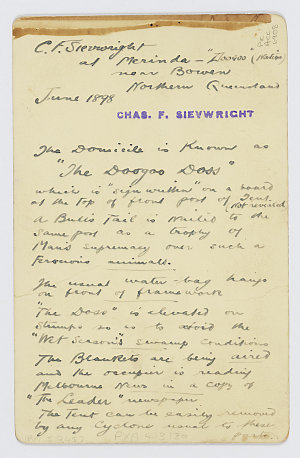 C. F. Sievwright
at Merinda - "Doogoo" (Native)
near Bowen
Northern Queensland
June 1898
CHAS. F. SIEVWRIGHT
The Domicile is Known as
"The Doogoo Doss"
which is "sign written" on a board
at the top of front post of Tent
Not revealed
A Bulls Tail is Nailed to the
same post as a trophy of
Man's supremacy over such a
Ferocious animals.
The usual water-bag hangs
on front of framework
"The Doss" is elevated on
stumps so as to avoid the
"Wet Season's" swamp conditions
The Blankets are being aired
and the occupier is reading
Melbourne News in a copy of
"The Leader" newspaper
The Tent can be easily removed
by any Cyclone usual to these
parts.